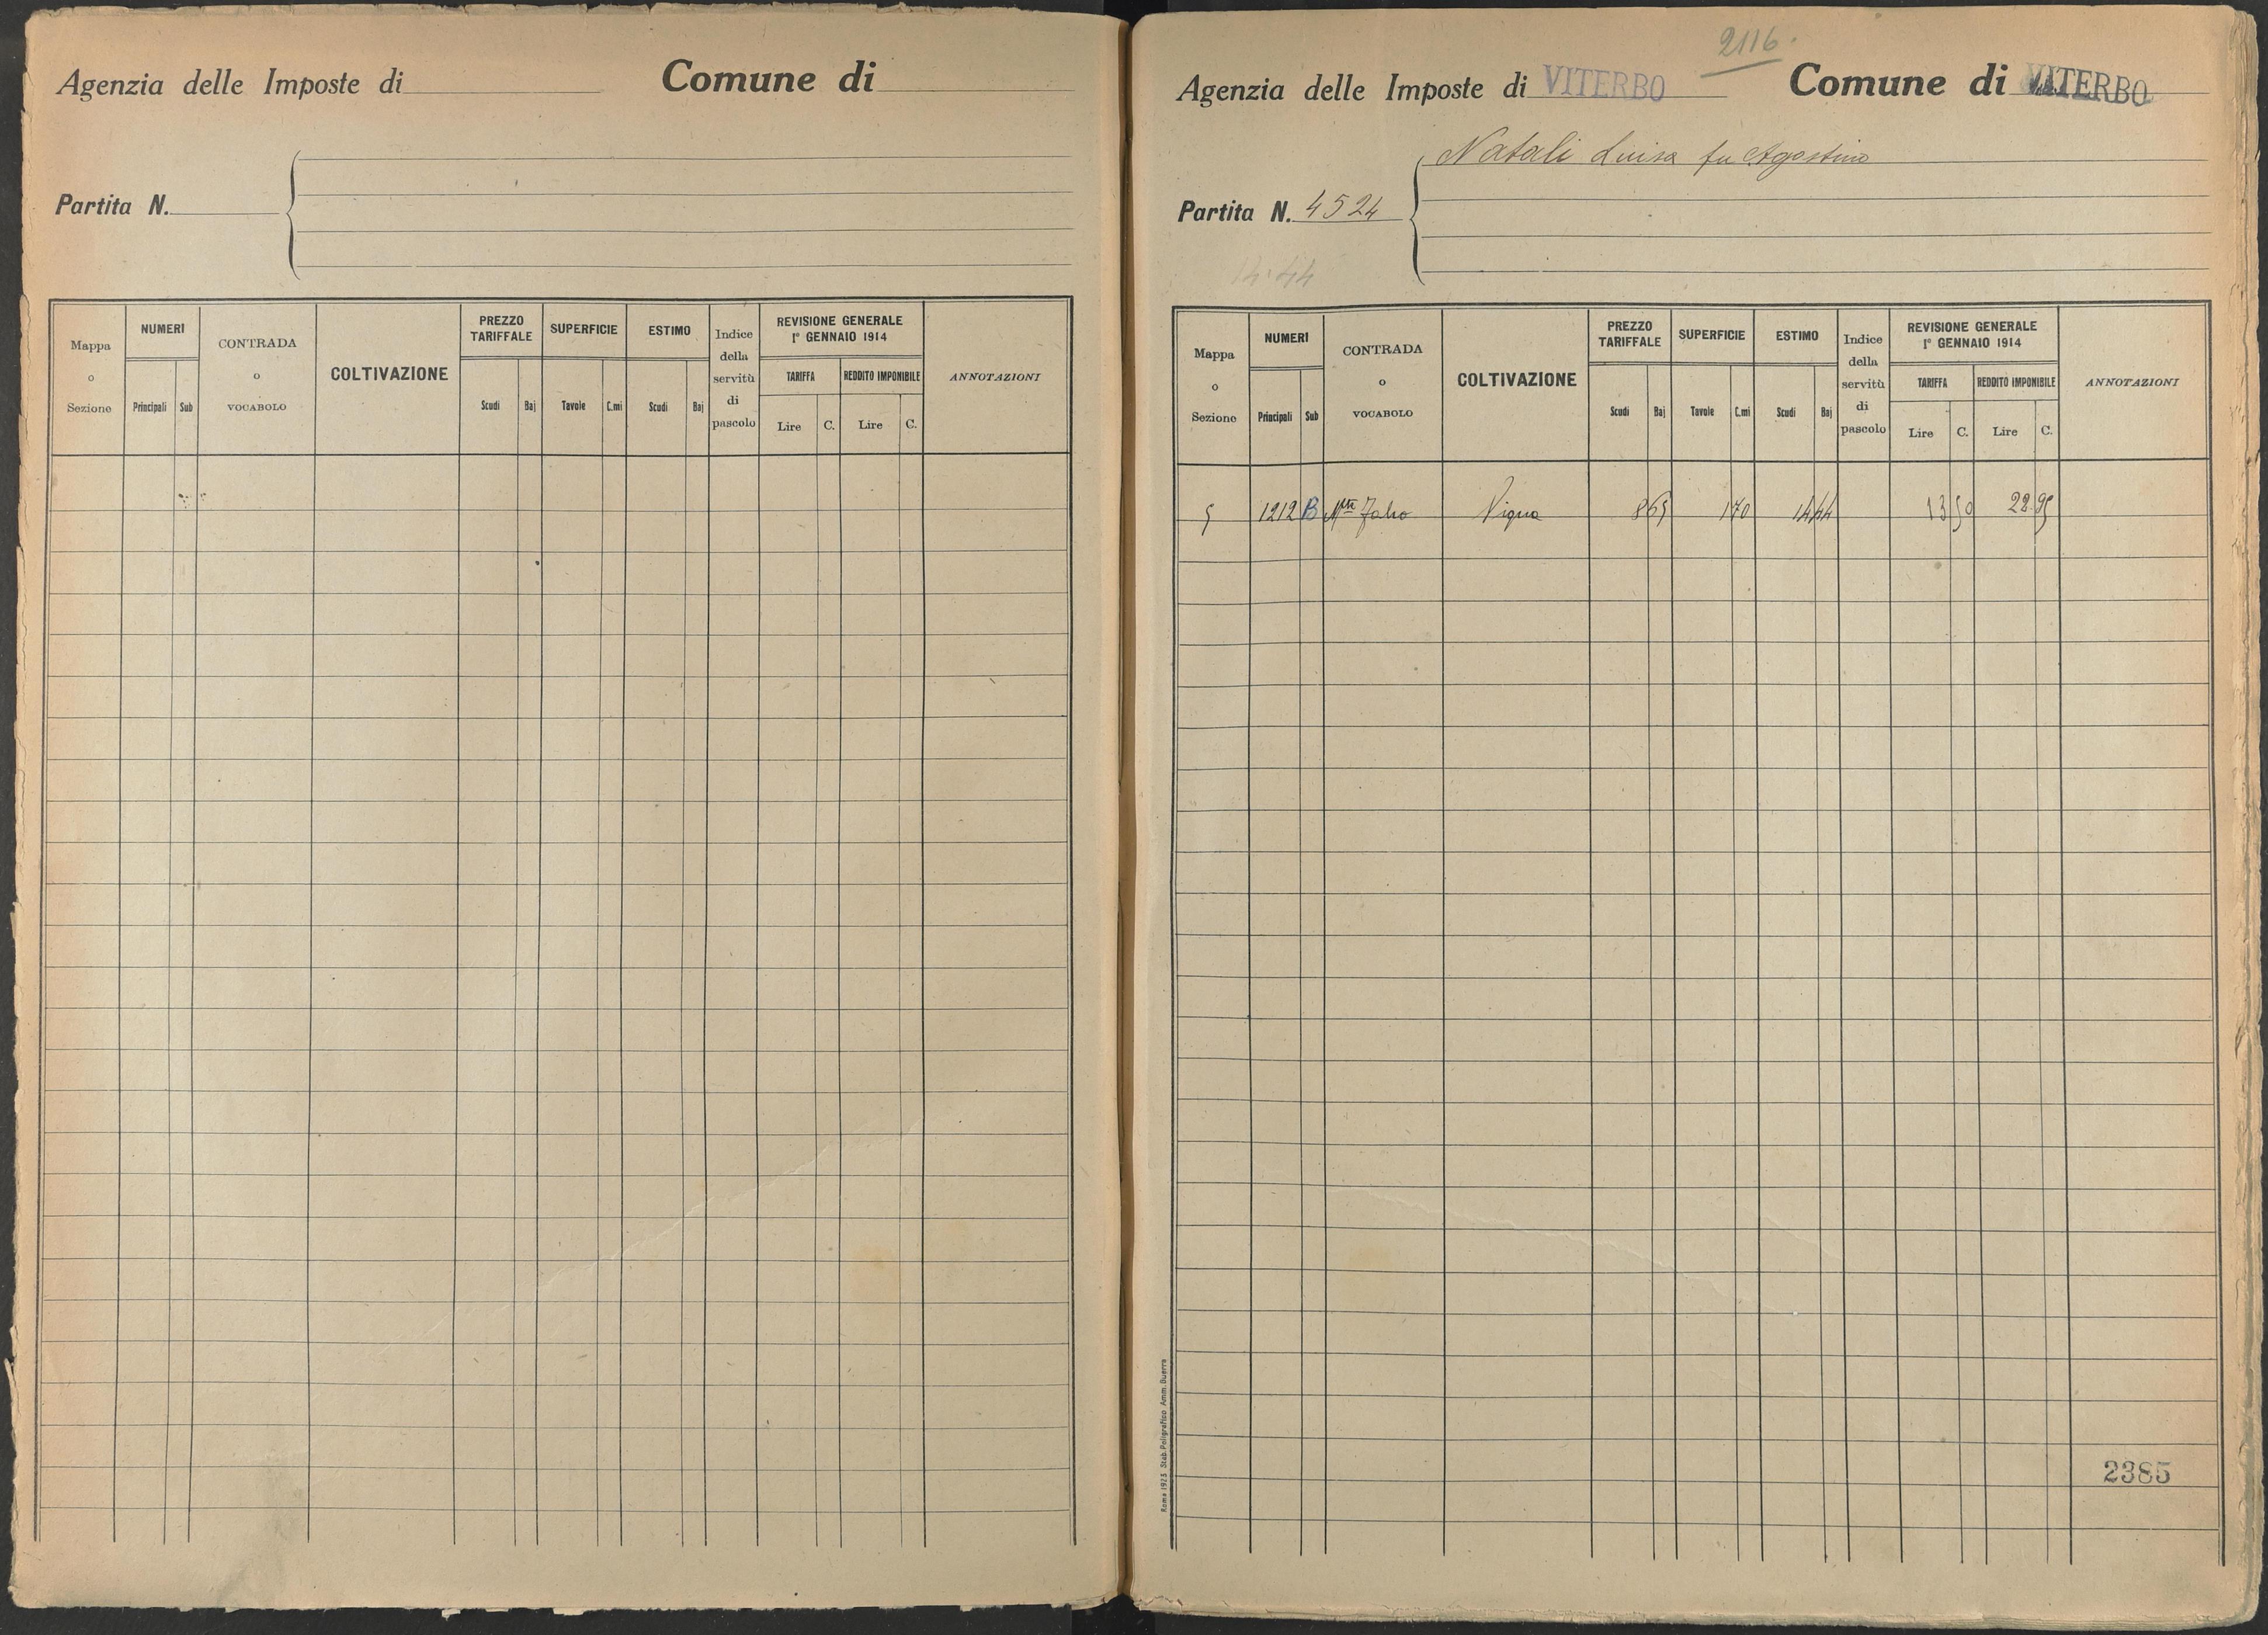 Agenzia delle Imposte di Comune di
Partita N.
Mappa o Sezione NUMERI Principali Sub CONTRADA o VOCABOLO COLTIVAZIONE PREZZO TARIFFALE Scudi Baj SUPERFICIE Tavole C.mi ESTIMO Scudi Baj Indice della servitù di pascolo REVISIONE GENERALE 1° GENNAIO 1914 TARIFFA Lire C. REDDITO IMPONIBILE Lire C. ANNOTAZIONI
2116.
Agenzia delle Imposte di VITERBO Comune di VITERBO
Natali Luisa fu Agostino
Partita N. 4524
14.44
Mappa o Sezione NUMERI Principali Sub CONTRADA o VOCABOLO COLTIVAZIONE PREZZO TARIFFALE Scudi Baj SUPERFICIE Tavole C.mi ESTIMO Scudi Baj Indice della servitù di pascolo REVISIONE GENERALE 1° GENNAIO 1914 TARIFFA Lire C. REDDITO IMPONIBILE Lire C. ANNOTAZIONI
5 1212 B Vigna 8 65 1 70 14 44 13 50 22 95
2385
Roma 1923 Stab. Poligrafico Amm. Guerra